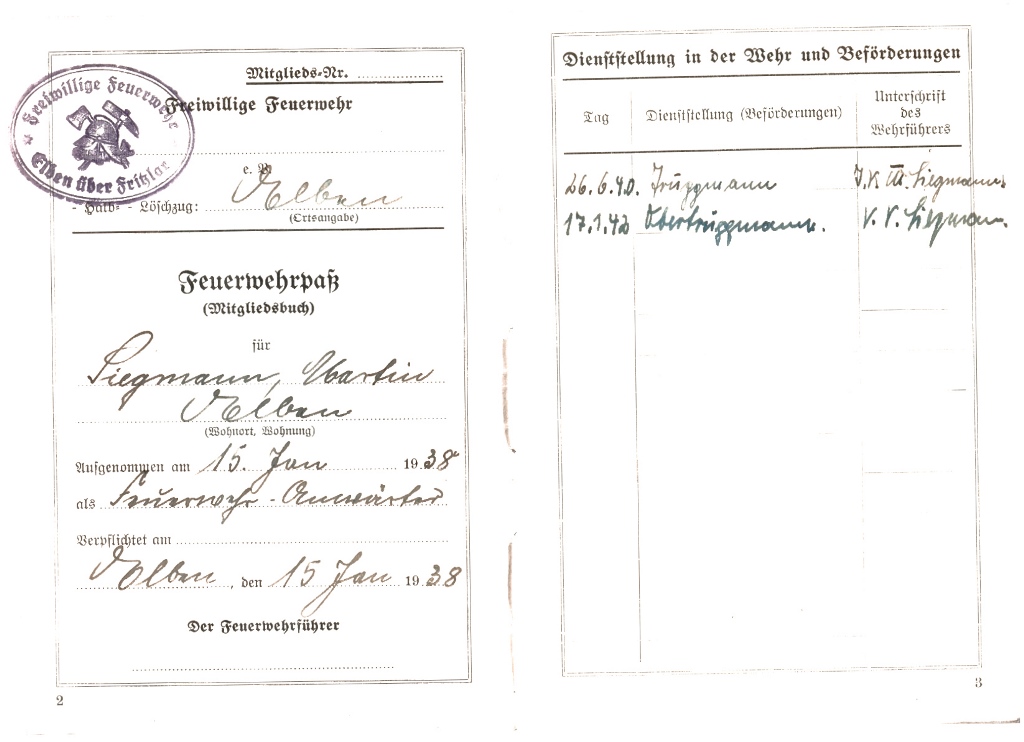 Mitglieds-Nr.
Freiwillige Feuerwehr
Elben über Fritzlar
Freiwillige Feuerwehr
e. V.
- Halb- - Löschzug: Elben
(Ortsangabe)
Feuerwehrpaß
(Mitgliedsbuch)
für
Siegmann, Martin
Elben
(Wohnort, Wohnung)
Aufgenommen am 15. Jan 1938
als Feuerwehr-Anwärter
Verpflichtet am
Elben, den 15 Jan 1938
Der Feuerwehrführer
2
Dienststellung in der Wehr und Beförderungen
Tag
Dienststellung (Beförderungen)
Unterschrift
des
Wehrführers
26.6.40. Truppmann Siegmann
17.1.42 Obertruppmann. V. V. Siegmann.
3